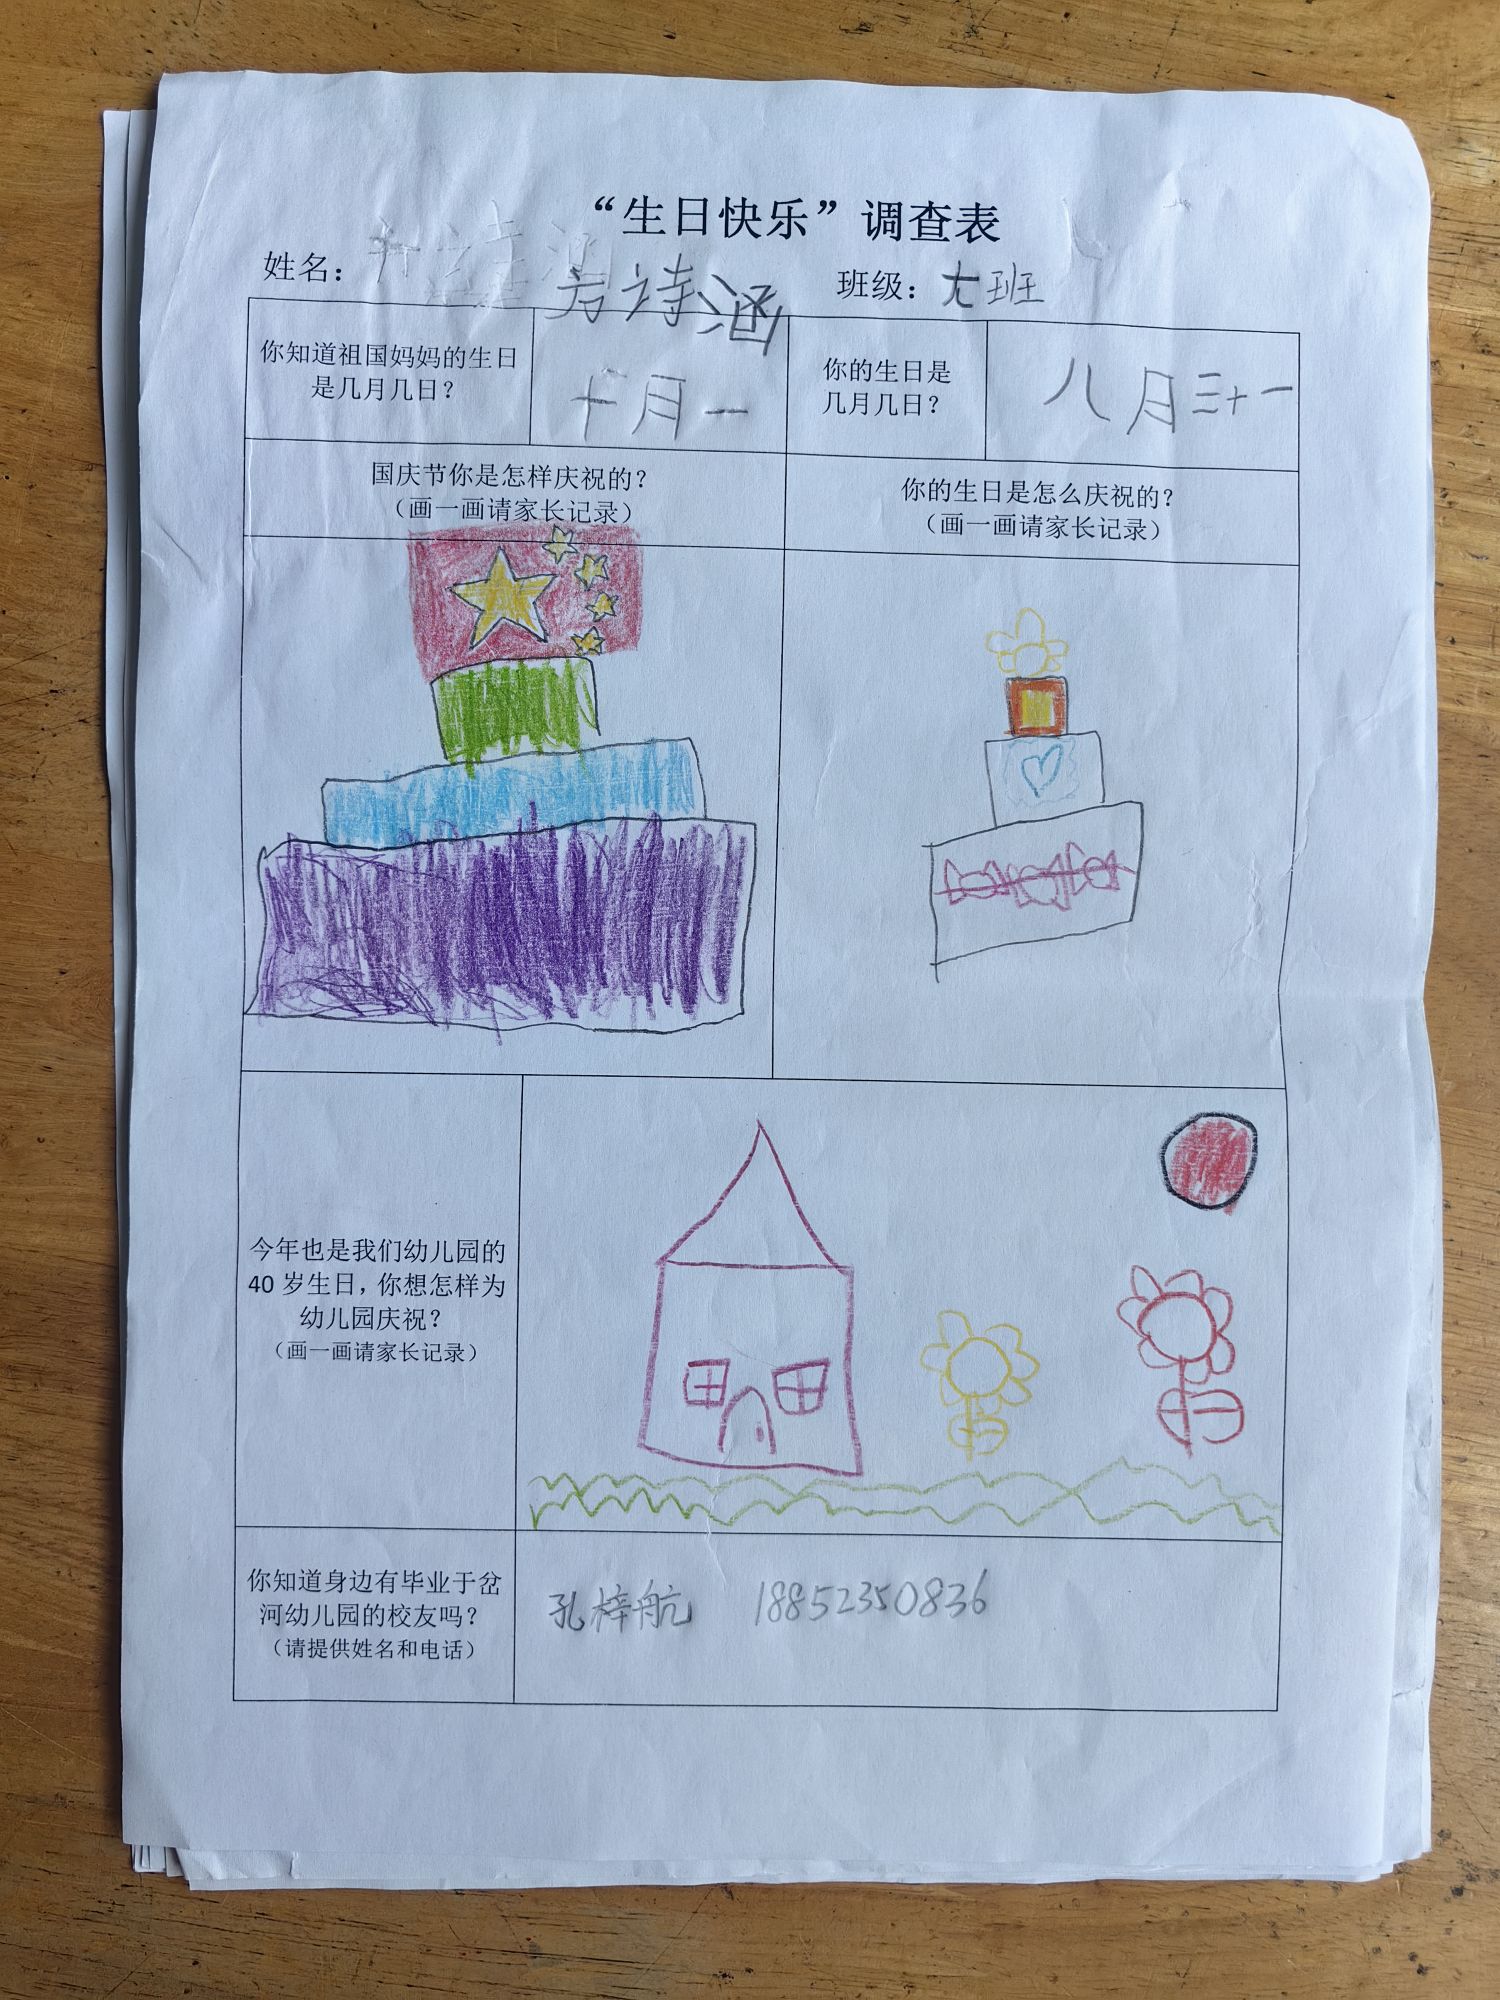 “生日快乐”调查表
姓名： 方诗涵 班级：大班
你知道祖国妈妈的生日
是几月几日？
十月一
你的生日是
几月几日？
八月三十一
国庆节你是怎样庆祝的？
（画一画请家长记录）
你的生日是怎么庆祝的？
（画一画请家长记录）
今年也是我们幼儿园的
40岁生日，你想怎样为
幼儿园庆祝？
（画一画请家长记录）
你知道身边有毕业于岔
河幼儿园的校友吗？
（请提供姓名和电话）
孔梓航 18852350836